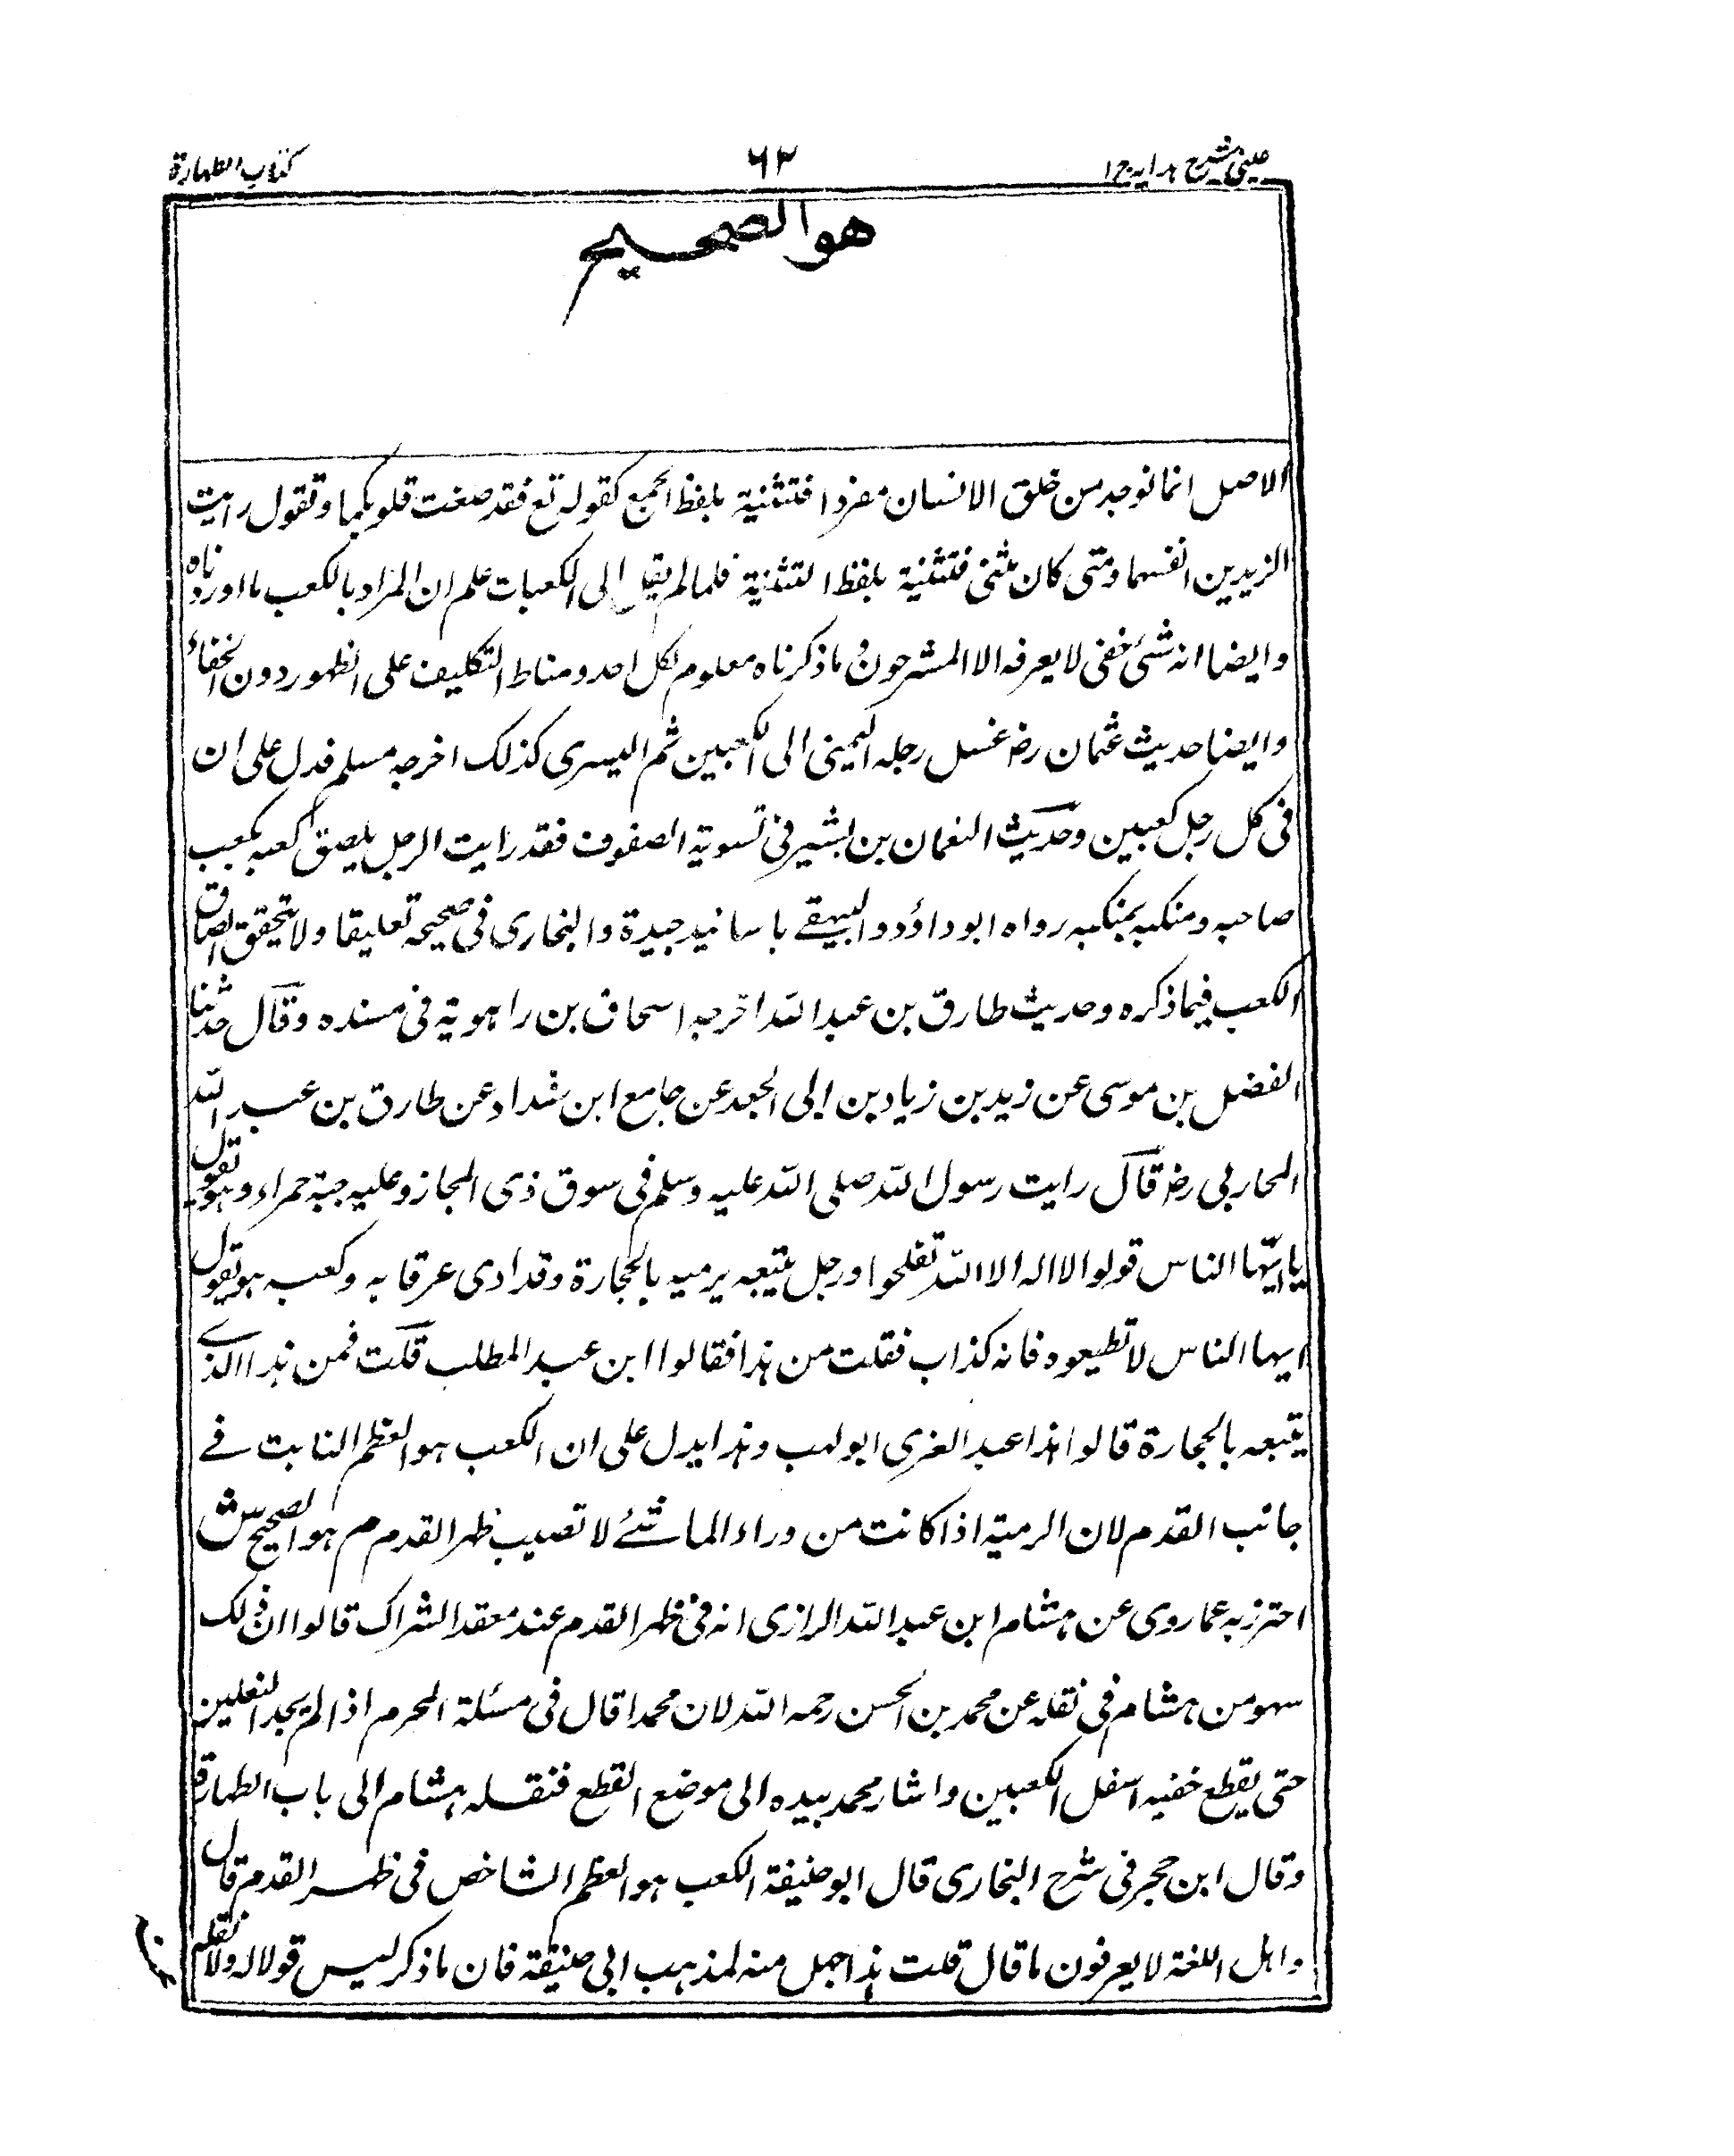 عینی شرح ہدایہ ج ١
٦٢
کتاب الطہارة
هو الصحیح
الاصل انما توجد من خلق الانسان مفردا فتثنیة بلفظ الجمع کقولہ تع فقد صغت قلوبکما وتقول رایت
الزیدین انفسہما ومتی کان مثنی فتثنیة بلفظ التثنیة فلما لم یقل الی الکعبات علم ان المراد بالکعب ما اوردناہ
وایضا انہ شئ خفی لا یعرفہ الا المشرحون وما ذکرناہ معلوم لکل احد ومناط التکلیف علی الظہور دون الخفاء
وایضا حدیث عثمان رض غسل رجلہ الیمنی الی الکعبین ثم الیسری کذلک اخرجہ مسلم فدل علی ان
فی کل رجل کعبین وحدیث النعمان بن بشیر فی تسویة الصفوف فقد رایت الرجل یلصق کعبہ بکعب
صاحبہ ومنکبہ بمنکبہ رواہ ابو داؤد والبیہقے باسانید جیدة والبخاری فی صحیحہ تعلیقا ولا یتحقق الصاق
الکعب فیما ذکرہ وحدیث طارق بن عبد اللہ اخرجہ اسحاق بن راہویة فی مسندہ وقال حدثنا
الفضل بن موسی عن زید بن زیاد بن ابی الجعد عن جامع ابن شداد عن طارق بن عبد اللہ
المحاربی رض قال رایت رسول اللہ صلی اللہ علیہ وسلم فی سوق ذی المجاز وعلیہ جبة حمراء وہو یقول
یا ایّہا الناس قولوا لا الہ الا اللہ تفلحوا ورجل یتبعہ یرمیہ بالحجارة وقد ادی عرقابہ وکعبہ ہو یقول
ایہا الناس لا تطیعوہ فانہ کذاب فقلت من ہذا فقالوا ابن عبد المطلب قلت فمن ہذا الذے
یتبعہ بالحجارة قالوا ہذا عبد العزی ابو لہب وہذا یدل علی ان الکعب ہو العظم النابت فے
جانب القدم لان الرمیة اذا کانت من وراء الماشئے لا تصیب ظہر القدم م ہو الصحیح ش
احترز بہ عما روی عن ہشام ابن عبد اللہ الرازی انہ فی ظہر القدم عند معقد الشراک قالوا ان ذلک
سہو من ہشام فی نقلہ عن محمد بن الحسن رحمہ اللہ لان محمدا قال فی مسئلة المحرم اذا لم یجد النعلین
حتی یقطع خفیہ اسفل الکعبین واشار محمد بیدہ الی موضع القطع فنقلہ ہشام الی باب الطہارة
وقال ابن حجر فی شرح البخاری قال ابو حنیفة الکعب ہو العظم الشاخص فی ظہر القدم قال
واہل اللغة لا یعرفون ما قال قلت ہذا جہل منہ لمذہب ابی حنیفة فان ما ذکر لیس قولا لہ ولا نقلہ